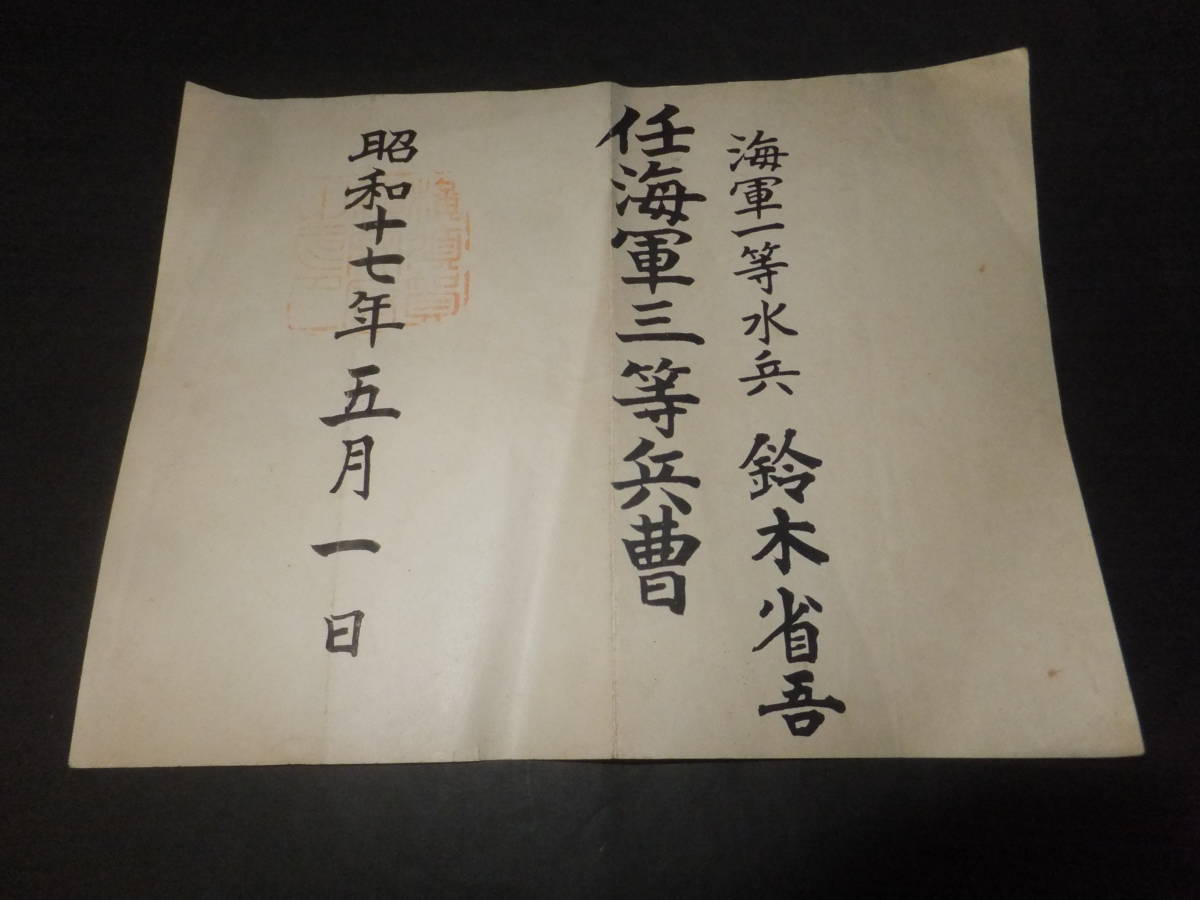 海軍一等水兵 鈴木省吾
任海軍三等兵曹
昭和十七年五月一日